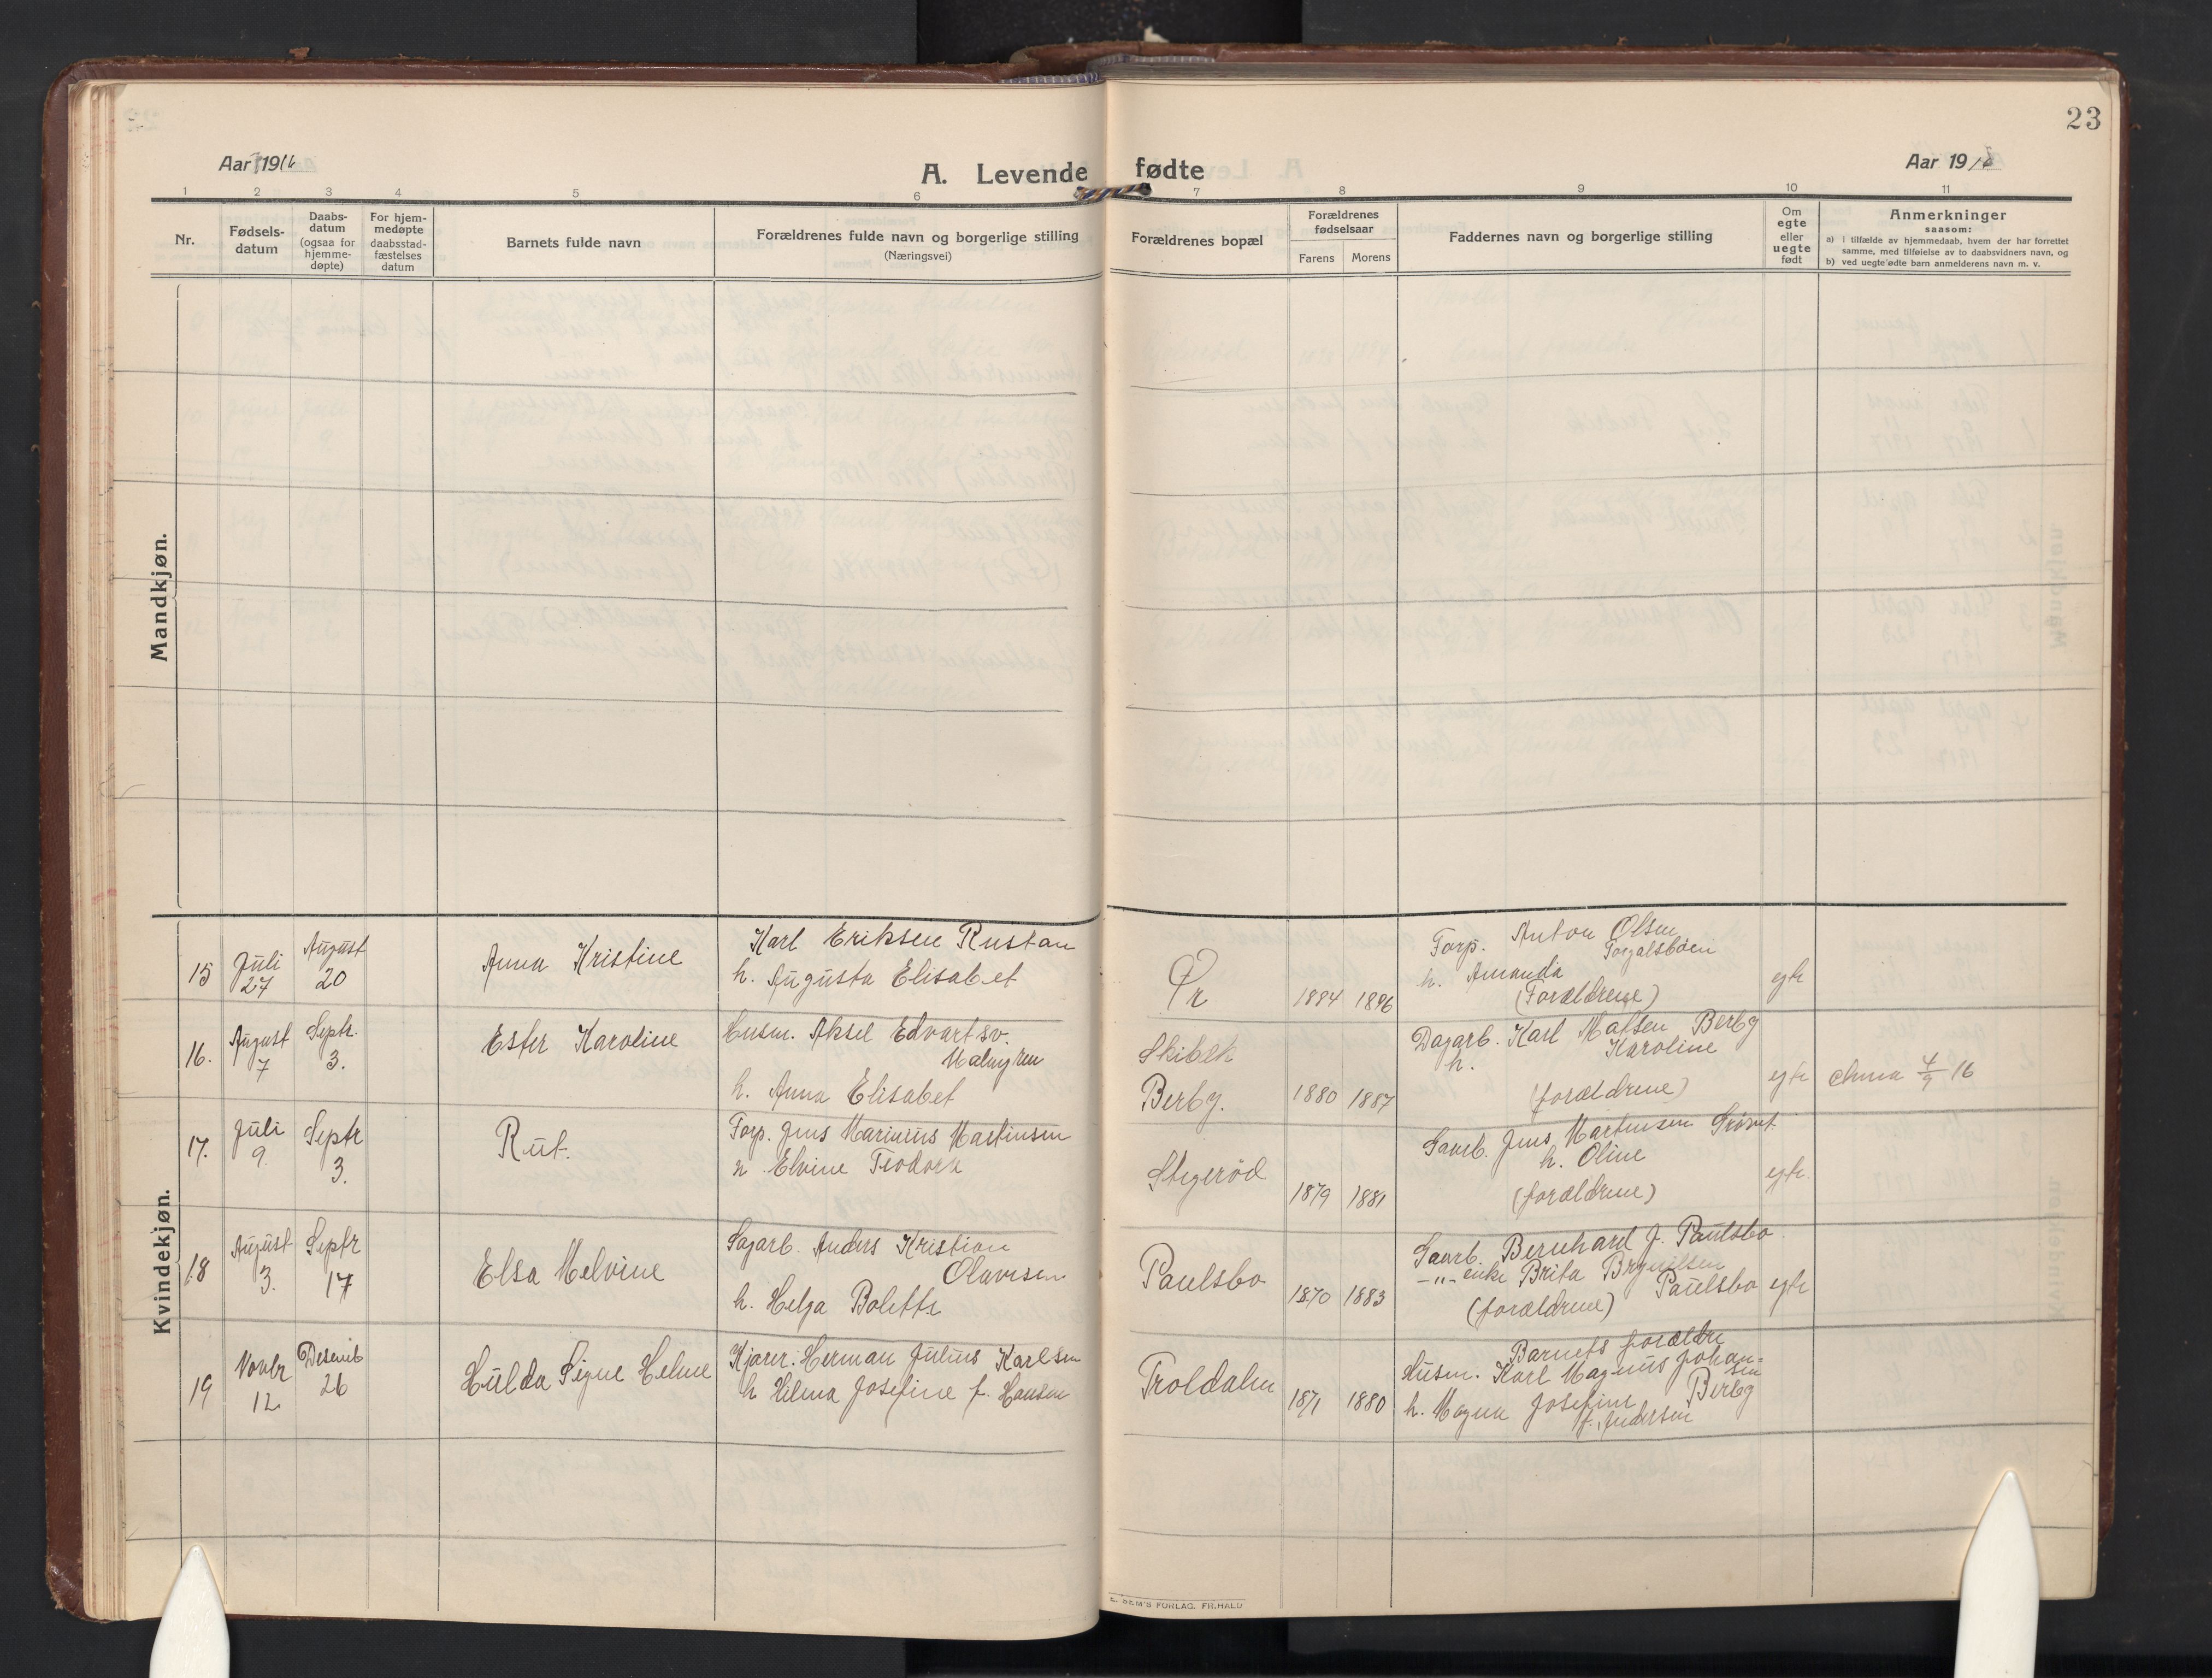 23
Aar 1916
A. Levende fødte
Aar 1916
1 2 3 4 5 6 7 8 9 10 11
Nr.
Fødsels-
datum
Daabs-
datum
(ogsaa for
hjemme-
døpte)
For hjem-
medøpte
daabsstad-
fæstelses
datum
Barnets fulde navn
Forældrenes fulde navn og borgerlige stilling
(Næringsvei)
Forældrenes bopæl
Forældrenes
fødselsaar
Farens Morens
Faddernes navn og borgerlige stilling
Om
egte
eller
uegte
født
Anmerkninger
saasom:
a) i tilfælde av hjemmedaab, hvem der har forrettet
samme, med tilføielse av to daabsvidners navn, og
b) ved uegte fødte barn anmelderens navn m. v.
Mandkjøn.
Kvindekjøn.
15
Juli
27
August
20
Anna Kristine
Karl Eriksen Rustan
h. Augusta Elisabet
Ør
1884 1886
Forp. Anton Olsen
Torgalsbøen
h. Amanda
(Forældrene)
egte
16.
August
7
Septr.
3.
Ester Karoline
Husm. Aksel Edvartsv.
Malmgren
h. Anna Elisabet
Skibelk
Berby.
1880 1887
Dagarb. Karl Matsen Berby
h. Karoline
(forældrene)
egte
4/9 16
17.
Juli
9
Septr
3.
Rut.
Forp. Jens Marinius Martinsen
h Elvine Teodora
Stigerød
1879 1881
Gaarb. Jens Martinsen
h. Oline
(forældrene)
egte.
18
August
3.
Septr
17
Elsa Melvine
Sagarb. Anders Kristian
Olavesen
h. Helga Bolette
Paulsbo
1870 1883
Gaarb. Bernhard J. Paulsbo
-"- enke Brita Brynilsen
Paulsbo
(forældrene)
egte
19
Novbr
12
Desemb
26
Hulda Signe Helene
Kjører. Herman Julius Karlsen
h Hilma Josefine f. Hansen
Troldalen
1871 1880
Barnets forældre
Husm. Karl Magnus Johan-
sen
Berby
h. Magna Josefine
f. Andersen
E. SEM'S FORLAG. FR.HALD